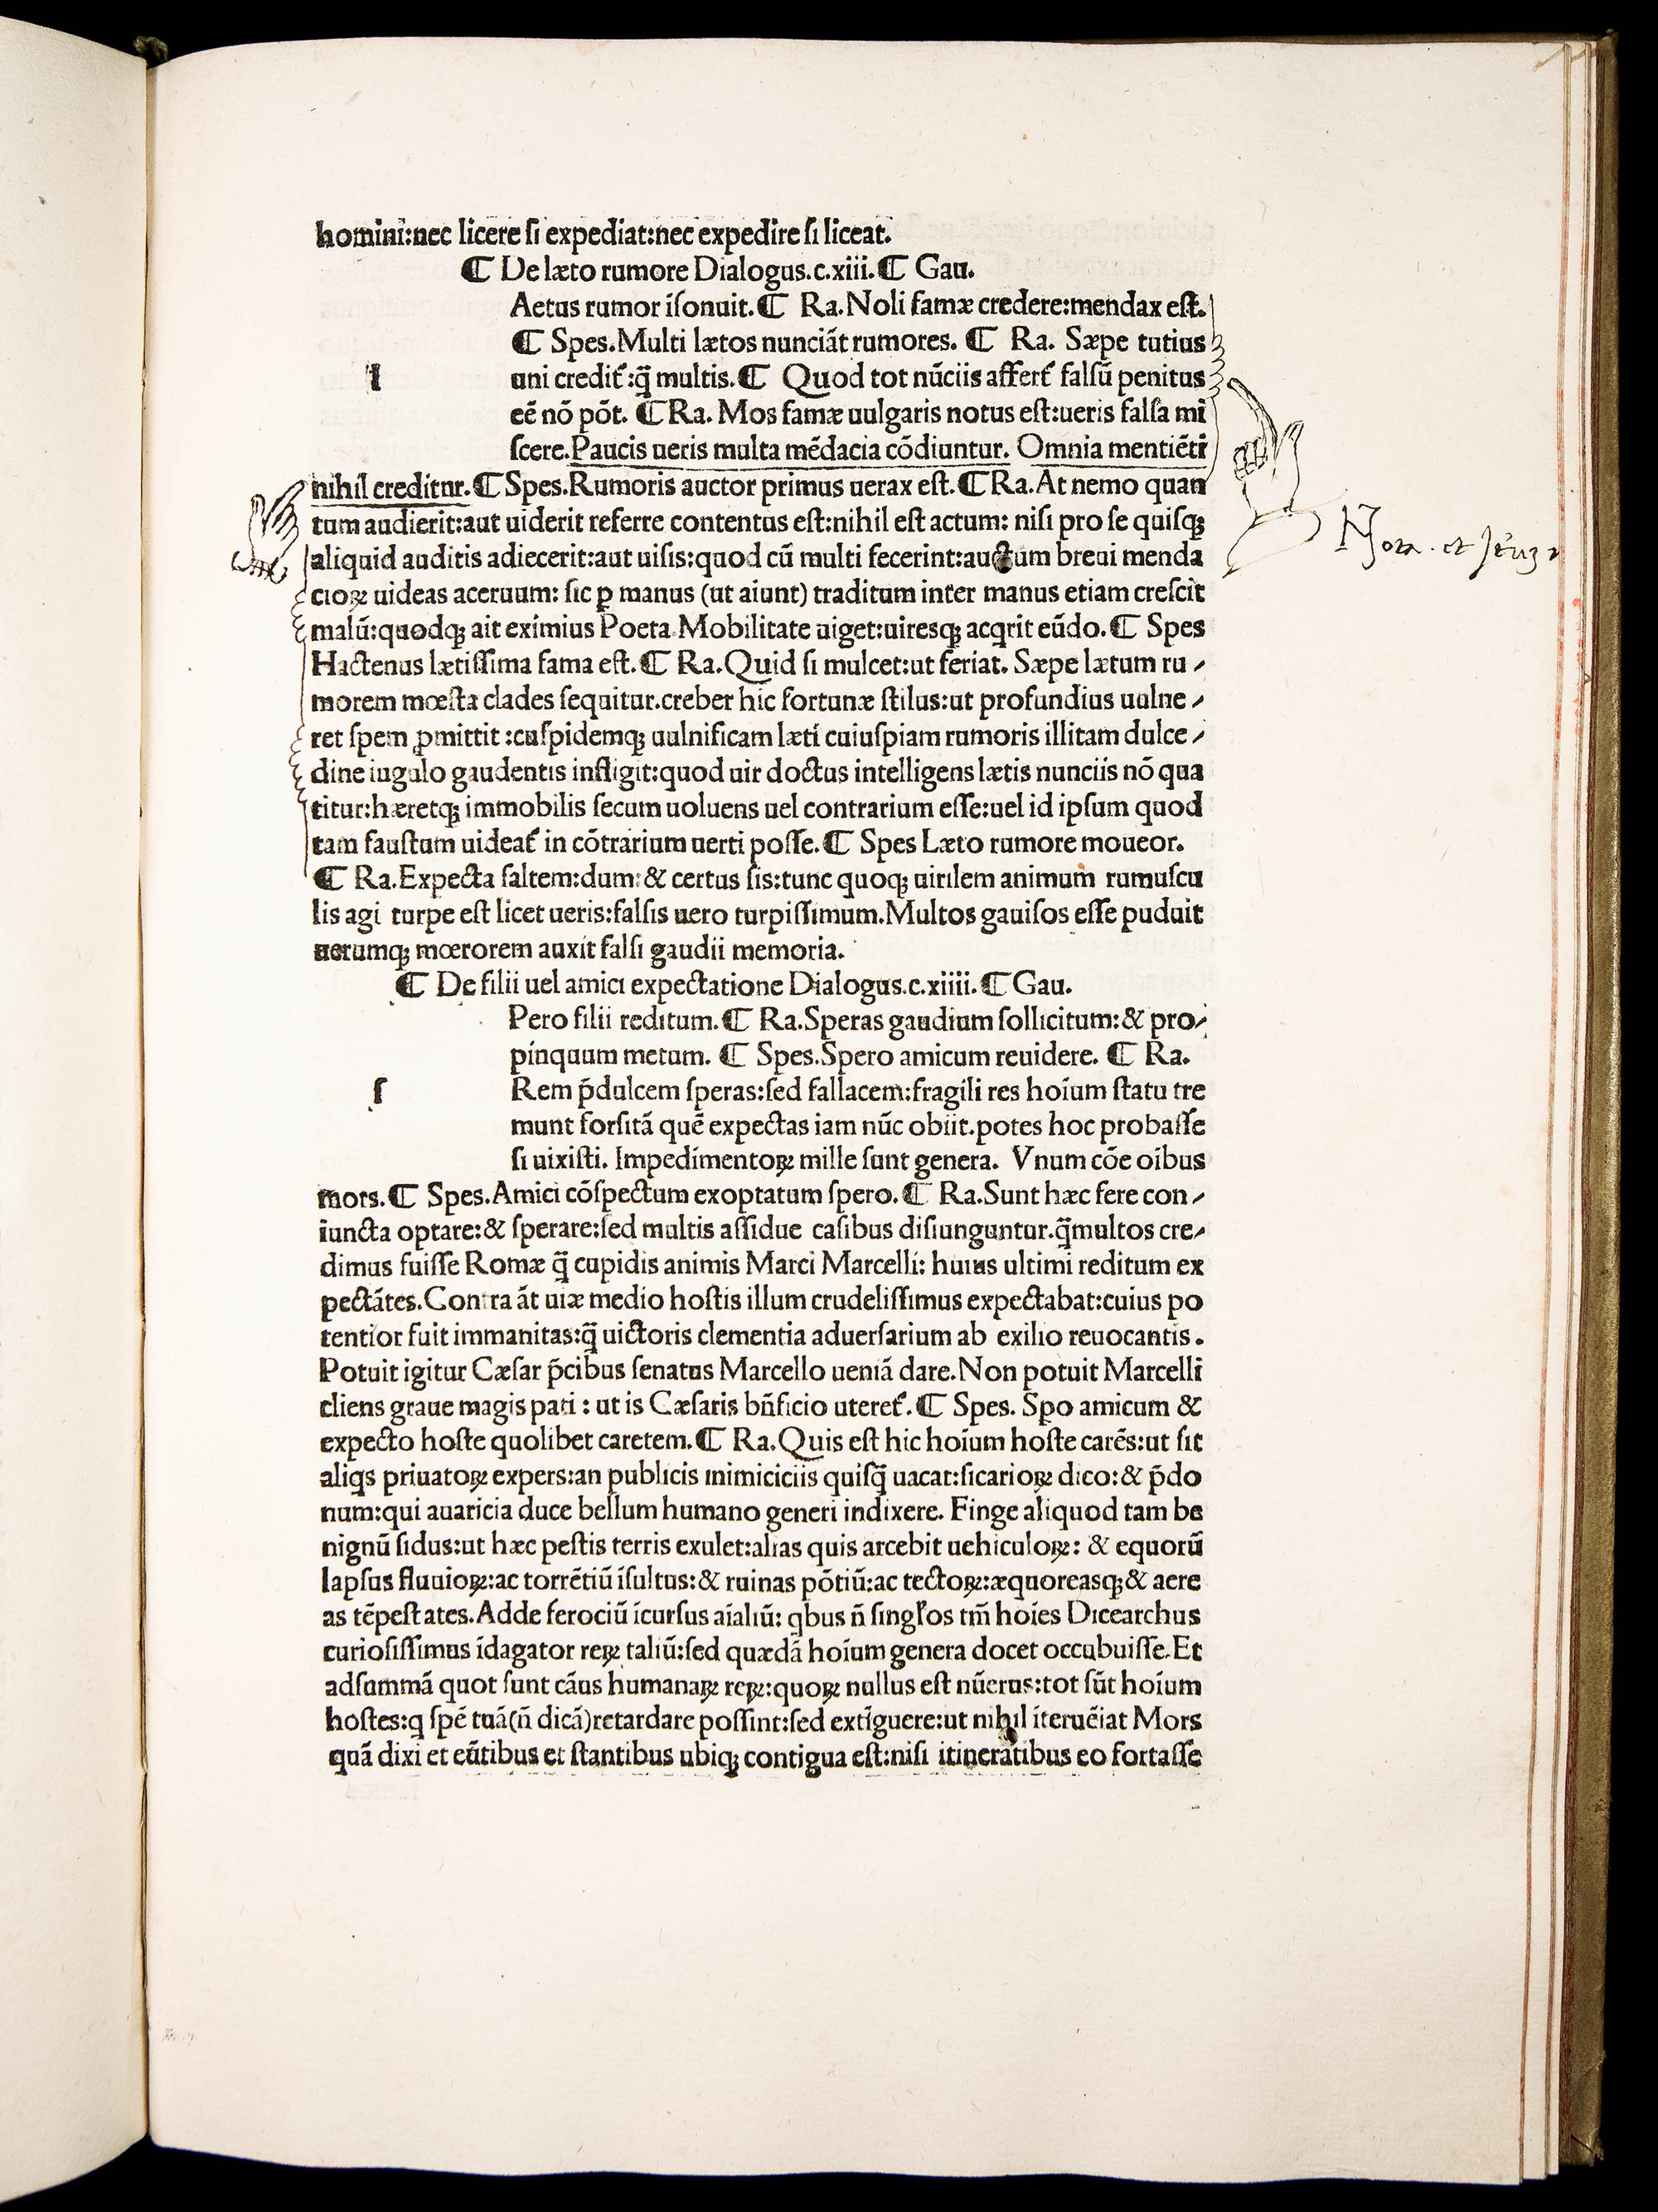 homini:nec licere ſi expediat:nec expedire ſi liceat.
¶ De læto rumore Dialogus.c.xiii.¶ Gau.
Aetus rumor iſonuit.¶ Ra.Noli famæ credere:mendax eſt.
¶ Spes.Multi lætos nunciāt rumores. ¶ Ra. Sæpe tutius
l uni credit᷑:q̄ multis.¶ Quod tot nūciis affert᷑ falſū penitus
eē nō pōt. ¶Ra. Mos famæ uulgaris notus eſt:ueris falſa mi
ſcere.Paucis ueris multa mēdacia cōdiuntur. Omnia mentiēti
nihil creditur.¶Spes.Rumoris auctor primus uerax eſt.¶Ra.At nemo quan
tum audierit:aut uiderit referre contentus eſt:nihil eſt actum: niſi pro ſe quiſqꝫ
Nota. et
aliquid auditis adiecerit:aut uiſis:quod cū multi fecerint:auctum breui menda
cioꝝ uideas aceruum: ſic ꝑ manus (ut aiunt) traditum inter manus etiam creſcit
malū:quodqꝫ ait eximius Poeta.Mobilitate uiget:uiresqꝫ acq̇rit eūdo.¶ Spes
Hactenus lætiſſima fama eſt.¶ Ra.Quid ſi mulcet:ut feriat. Sæpe lætum ru⸗
morem mœſta clades ſequitur.creber hic fortunæ ſtilus:ut profundius uulne⸗
ret ſpem ꝓmittit:cuſpidemqꝫ uulnificam læti cuiuſpiam rumoris illitam dulce⸗
dine iugulo gaudentis infligit:quod uir doctus intelligens lætis nunciis nō qua
titur:hæretqꝫ immobilis ſecum uoluens uel contrarium eſſe:uel id ipſum quod
tam fauſtum uideat᷑ in cōtrarium uerti poſſe.¶ Spes Læto rumore moueor.
¶ Ra.Expecta ſaltem:dum:& certus ſis:tunc quoqꝫ uirilem animum rumuſcu
lis agi turpe eſt licet ueris:falſis uero turpiſſimum.Multos gauiſos eſſe puduit
uerumqꝫ mœrorem auxit falſi gaudii memoria.
¶ De filii uel amici expectatione Dialogus.c.xiiii.¶ Gau.
Pero filii reditum.¶ Ra.Speras gaudium ſollicitum:& pro⸗
pinquum metum. ¶ Spes.Spero amicum reuidere. ¶ Ra.
ſ Rem p̄dulcem ſperas:ſed fallacem:fragili res hoīum ſtatu tre
munt forſitā quē expectas iam nūc obiit.potes hoc probaſſe
ſi uixiſti. Impedimentoꝝ mille ſunt genera. Vnum cōe oībus
mors.¶ Spes.Amici cōſpectum exoptatum ſpero.¶ Ra.Sunt hæc fere con⸗
iuncta optare:& ſperare:ſed multis aſſidue caſibus diſiunguntur.q̄multos cre⸗
dimus fuiſſe Romæ q̄ cupidis animis Marci Marcelli: huius ultimi reditum ex
pectātes.Contra āt uiæ medio hoſtis illum crudeliſſimus expectabat:cuius po
tentior fuit immanitas:q̄ uictoris clementia aduerſarium ab exilio reuocantis.
Potuit igitur Cæſar p̄cibus ſenatus Marcello ueniā dare.Non potuit Marcelli
cliens graue magis pati : ut is Cæſaris bn̄ficio uteret᷑.¶ Spes. Spo amicum &
expecto hoſte quolibet caretem.¶ Ra.Quis eſt hic hoīum hoſte carēs:ut ſit
aliq̇s priuatoꝝ expers:an publicis inimiciciis quiſq̄ uacat:ſicarioꝝ dico:& p̄do
num:qui auaricia duce bellum humano generi indixere. Finge aliquod tam be
nignū ſidus:ut hæc peſtis terris exulet:alias quis arcebit uehiculoꝝ: & equorū
lapſus fluuioꝝ:ac torrētiū īſultus:& ruinas pōtiū:ac tectoꝝ:æquoreasqꝫ & aere
as tēpeſtates.Adde ferociū īcurſus aīaliū: q̇bus n̄ ſingl̓os tm̄ hoīes Dicearchus
curioſiſſimus īdagator reꝝ taliū:ſed quædā hoīum genera docet occubuiſſe.Et
adſummā quot ſunt cāus humanaꝝ reꝝ:quoꝝ nullus eſt nūerus:tot ſūt hoīum
hoſtes:q̇ ſpē tuā(n̄ dicā)retardare poſſint:ſed extīguere:ut nihil īteruēiat Mors
quā dixi et eūtibus et ſtantibus ubiqꝫ contigua eſt:niſi itinerātibus eo fortaſſe